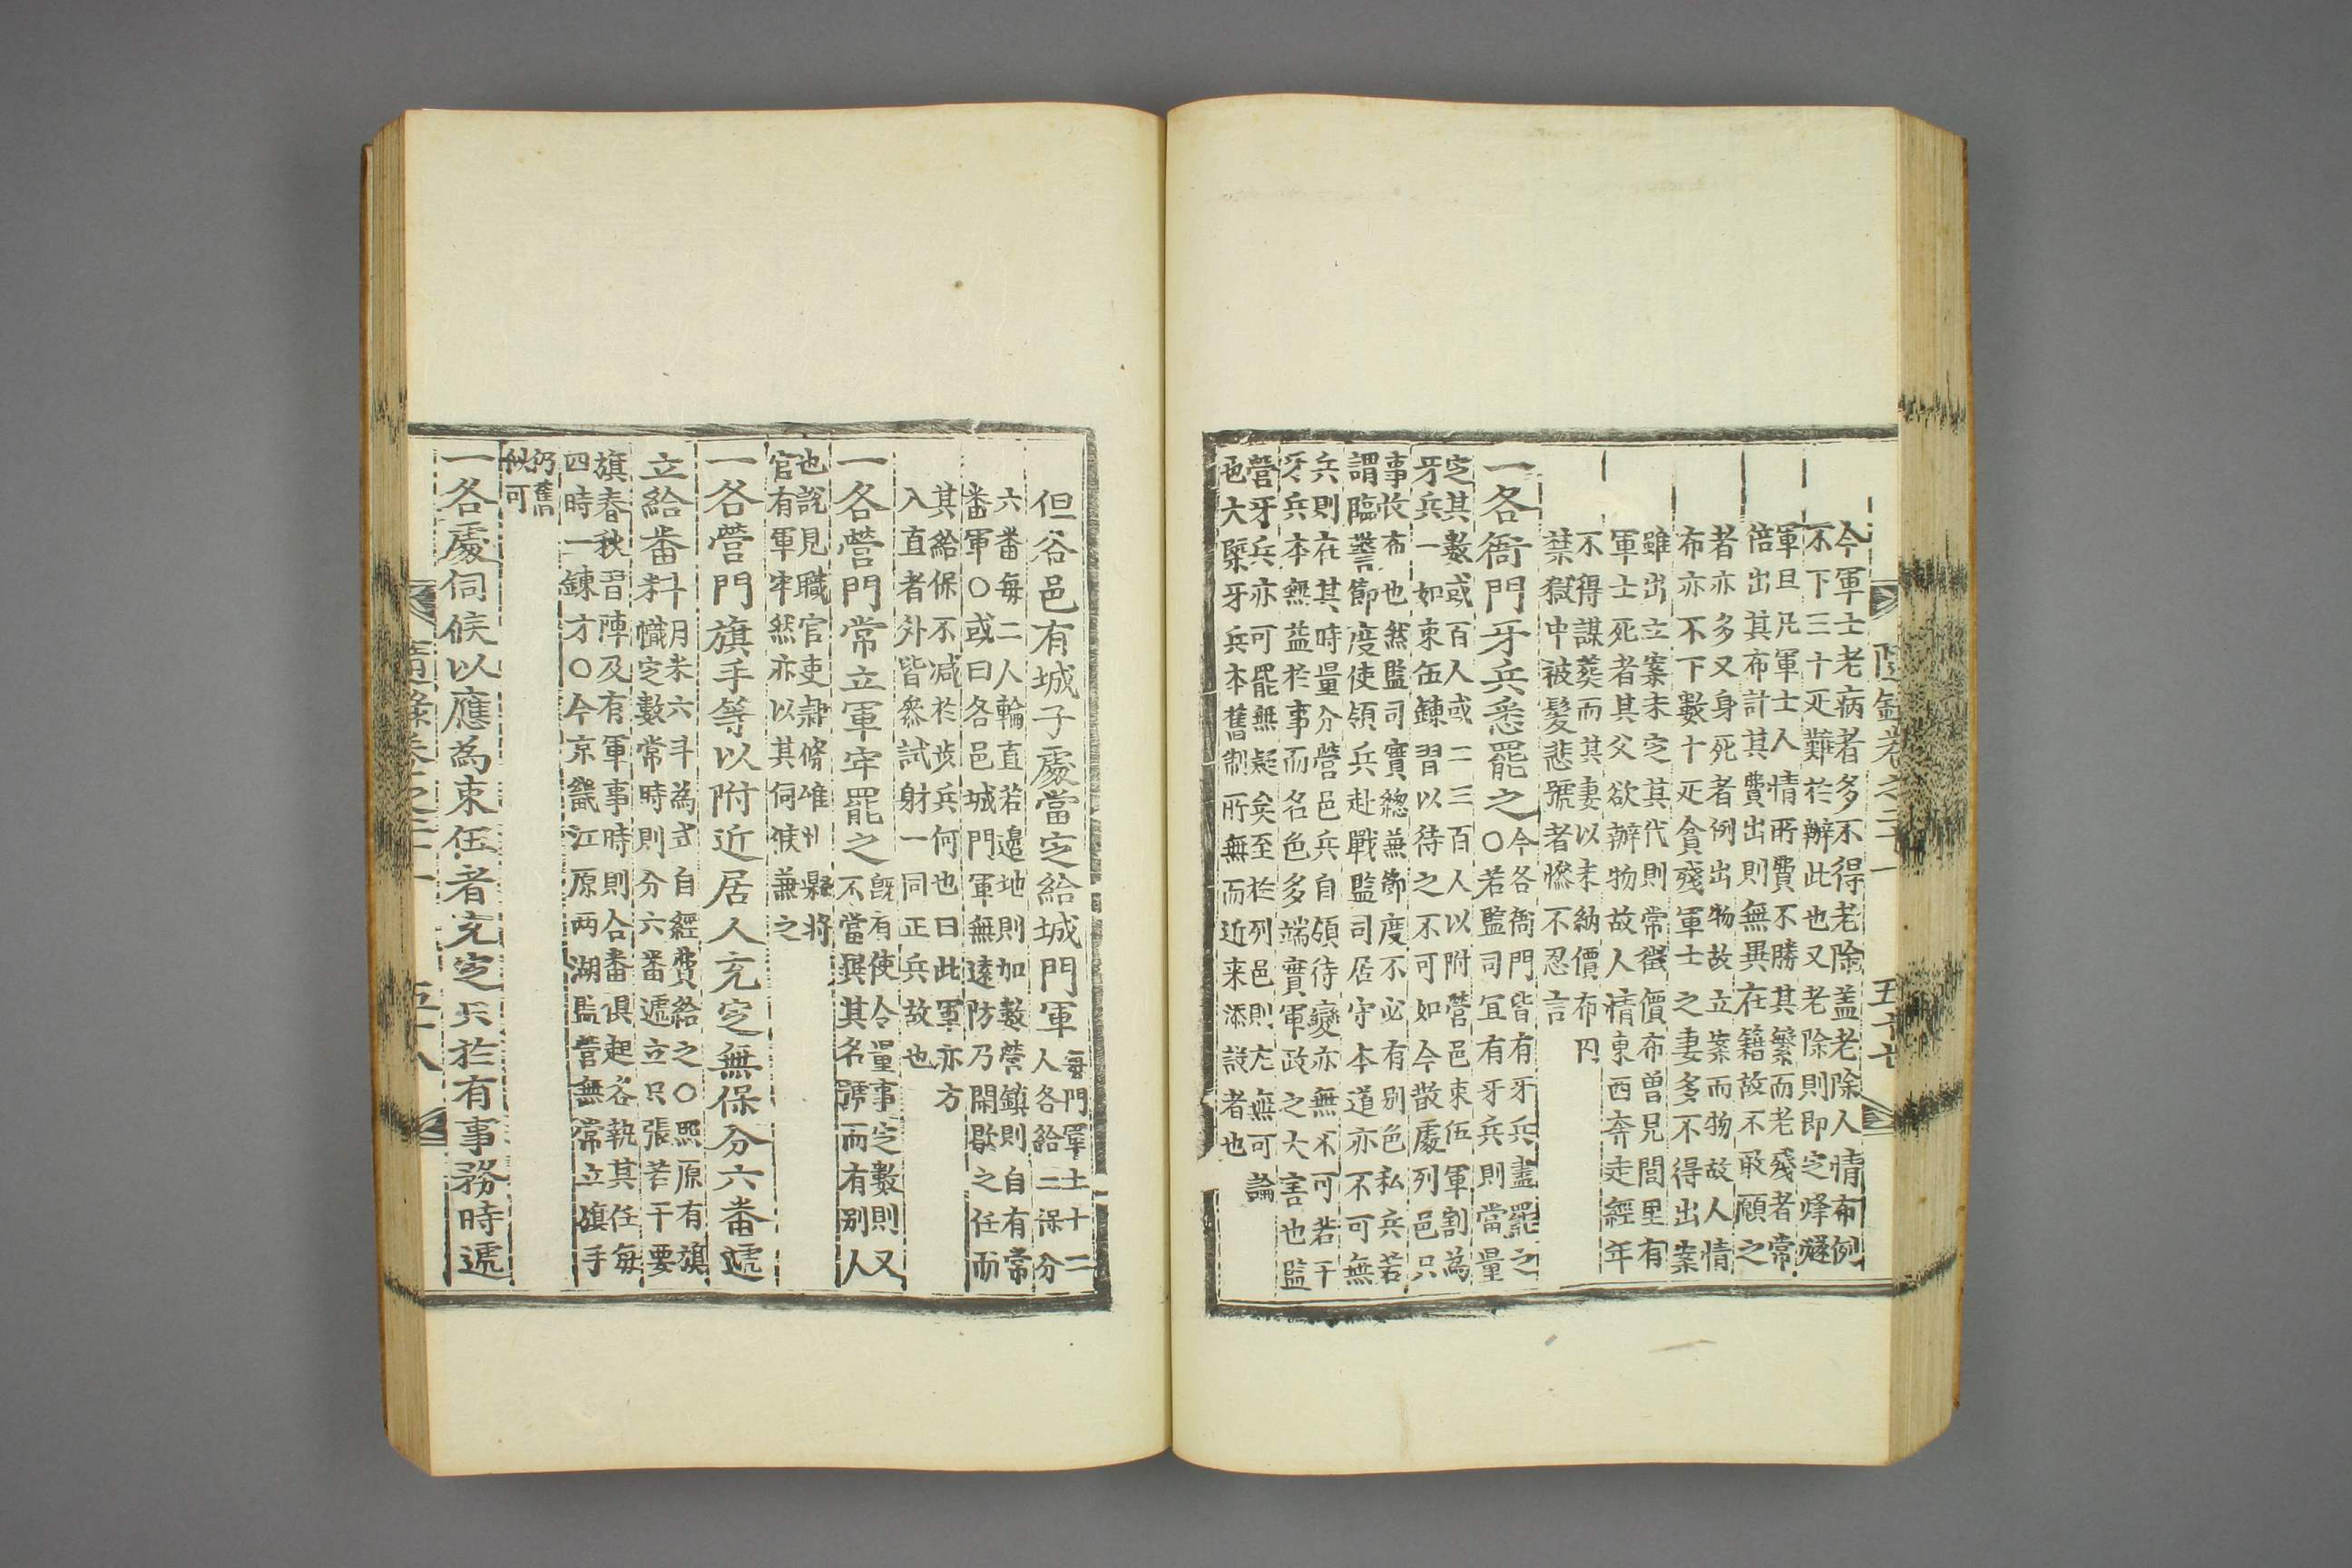 隨錄卷之二十一 五十七
今軍士老病者多不得老除盖老除人情布例
不下三十疋難於辦此也又老除則即定烽燧
軍且凡軍士人情所費不勝其繁而老殘者常
倍出其布計其費出則無異在籍故不敢願之
者亦多又身死者例出物故立案而物故人情
布亦不下數十疋貧殘軍士之妻多不得出案
雖出立案未定其代則常徵價布曾見閭里有
軍士死者其父欲辦物故人情東西奔走經年
不得謀葬而其妻以未納價布囚
禁獄中被髮悲號者慘不忍言
一各衙門牙兵悉罷之
今各衙門皆有牙兵盡罷之
○若監司宜有牙兵則當量
定其數或百人或二三百人以附營邑束伍軍割為
牙兵一如束伍鍊習以待之不可如今散處列邑只
事收布也然監司實緫兼節度不必有別色私兵若
謂臨警節度使領兵赴戰監司居守本道亦不可無
兵則在其時量分營邑兵自領待變亦無不可若干
牙兵本無益於事而名色多端實軍政之大害也監
營牙兵亦可罷無疑矣至於列邑則尤無可論
也大槩牙兵本舊制所無而近来添設者也
但各邑有城子處當定給城門軍
每門軍士十二
人各給二保分
六番每二人輪直若邊地則加數營鎮則自有常
番軍○或曰各邑城門軍無遠防乃閑歇之任而
其給保不减於步兵何也曰此軍亦方
入直者外皆叅試射一同正兵故也
一各營門常立軍牢罷之
旣有使令量事定數則又
不當撰其名號而有別人
也說見職官吏隷條雖州縣將
官有軍牢然亦以其伺候兼之
一各營門旗手等以附近居人充定無保分六番遞
立給番料
月米六斗為式自經費給之○照原有旗
幟定數常時則分六番遞立只張若干要
旗春秋習陣及有軍事時則合番俱起各執其任每
四時一鍊才○今京畿江原两湖監營無常立旗手
仍舊
似可
一各處伺候以應為束伍者充定只於有事務時遞
隨錄卷之二十一 五十八